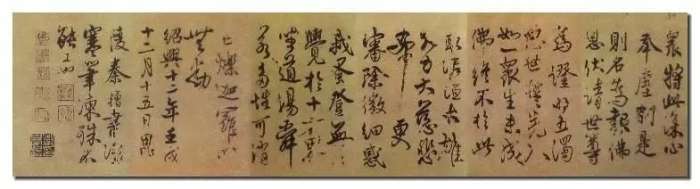 眾將此深心
奉塵剎是
則名為報佛
恩伏請世尊
為證明五濁
惡世誓先入
如一眾生未成
佛終不於此
取泥洹大雄
大力大慈悲
希更
審除微細惑
我早登無上
覺於十方界
坐道場舜
若多性可銷
亡爍迦羅心
無動
紹興十二年壬戌
十二月十五日思
陵秦檜書
寒筆凍殊不
能工